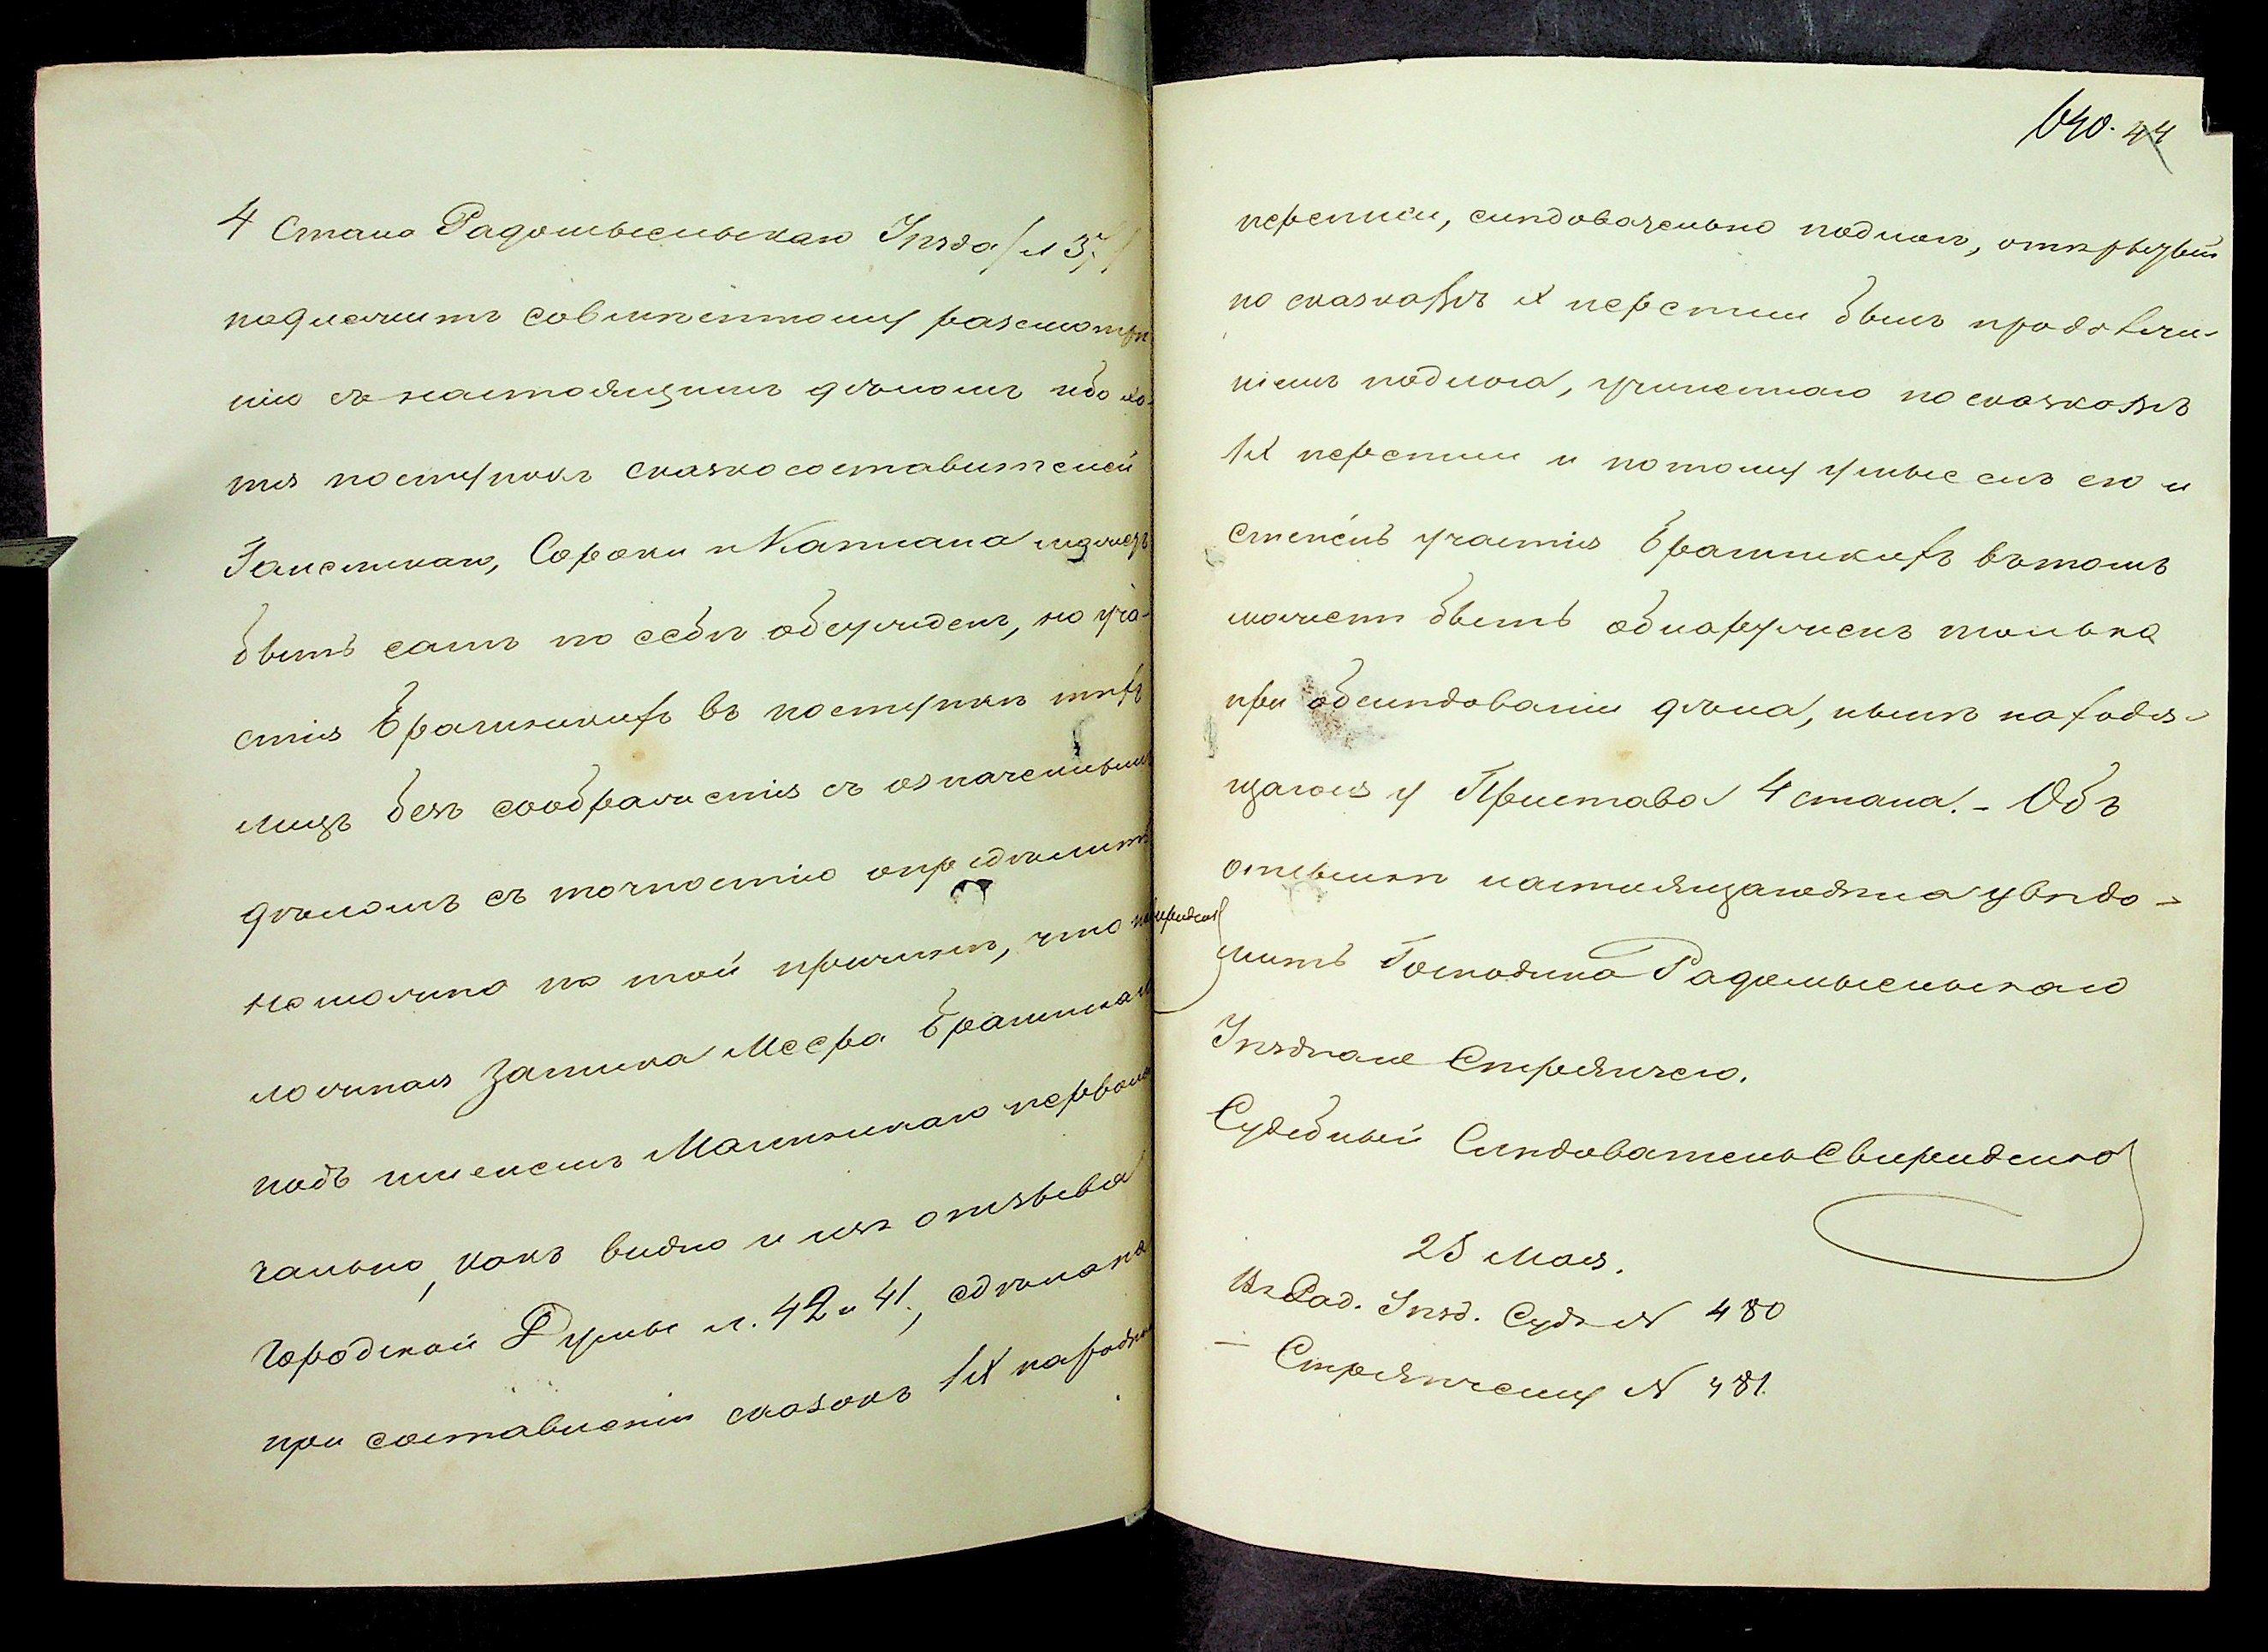 4 стана Радомысльскаго Уѣзда /л 37/
подлежитъ совмѣстному разсмотрѣ
нію съ настоящимъ дѣломъ ибо хо
тя поступокъ сказкосоставителей
Заменскаго, Сороки и Каплана можетъ
быть самъ по себѣ обсужденъ, но уча-
стія Брагинскихъ въ поступкѣ тѣхъ
лицъ безъ сображенія съ означеннымъ
дѣломъ съ точностію опредѣлить
неможно по той причинѣ, что
ложная записка Меера Брагинскаго
подъ именемъ Магинскаго первона
чально, какъ видно и изъ отзыва
Городской Думы л. 42 и 41, сдѣлана
при составленіи сказокъ IX народной
640. 44
переписи, слѣдовательно подлогъ, открытый
по сказкамъ X переписи былъ продолже-
ніемъ подлога, учиненнаго по сказкамъ
IX переписи и потому умыселъ его и
степень участія Брагинскихъ въ томъ
можетъ быть обнаруженъ только
при обслѣдованіи дѣла, нынѣ находя-
щагося у Пристава 4 стана. - Объ
отсылкѣ настоящаго дѣла увѣдо-
мить Господина Радомысльскаго
Уѣзднаго Стряпчаго.
Судебный Слѣдователь Свириденко
25 Мая.
Въ Рад. Уѣзд. Судъ N 480
— Стряпчему N 481.